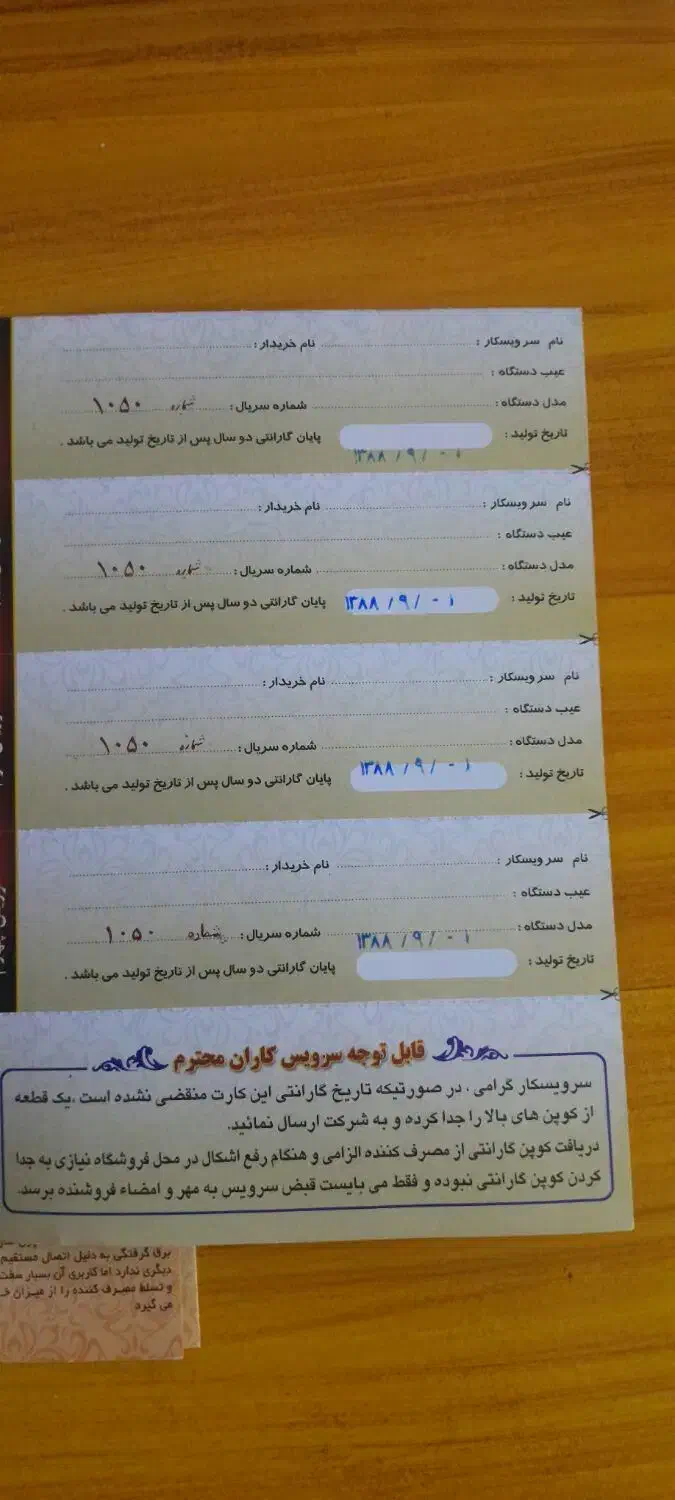 نام سرویسکار : نام خریدار :
عیب دستگاه :
مدل دستگاه : شماره سریال : شماره ۱۰۵۰
تاریخ تولید : پایان گارانتی دو سال پس از تاریخ تولید می باشد .
۱۳۸۸ / ۹ / ۰۱
نام سرویسکار : نام خریدار :
عیب دستگاه :
مدل دستگاه : شماره سریال : شماره ۱۰۵۰
تاریخ تولید : ۱۳۸۸ / ۹ / ۰۱ پایان گارانتی دو سال پس از تاریخ تولید می باشد .
نام سرویسکار : نام خریدار :
عیب دستگاه :
مدل دستگاه : شماره سریال : شماره ۱۰۵۰
تاریخ تولید : ۱۳۸۸ / ۹ / ۰۱ پایان گارانتی دو سال پس از تاریخ تولید می باشد .
نام سرویسکار : نام خریدار :
عیب دستگاه :
مدل دستگاه : شماره سریال : شماره ۱۰۵۰
۱۳۸۸ / ۹ / ۰۱
تاریخ تولید : پایان گارانتی دو سال پس از تاریخ تولید می باشد .
قابل توجه سرویس کاران محترم
سرویسکار گرامی ، در صورتیکه تاریخ گارانتی این کارت منقضی نشده است ،یک قطعه
از کوپن های بالا را جدا کرده و به شرکت ارسال نمائید.
دریافت کوپن گارانتی از مصرف کننده الزامی و هنگام رفع اشکال در محل فروشگاه نیازی به جدا
کردن کوپن گارانتی نبوده و فقط می بایست قبض سرویس به مهر و امضاء فروشنده برسد.
برق گرفتگی به دلیل اتصال مستقیم
دیگری ندارد اما کاربری آن بسیار سفت
و تسلط مصرف کننده را از میزان
می گیرد